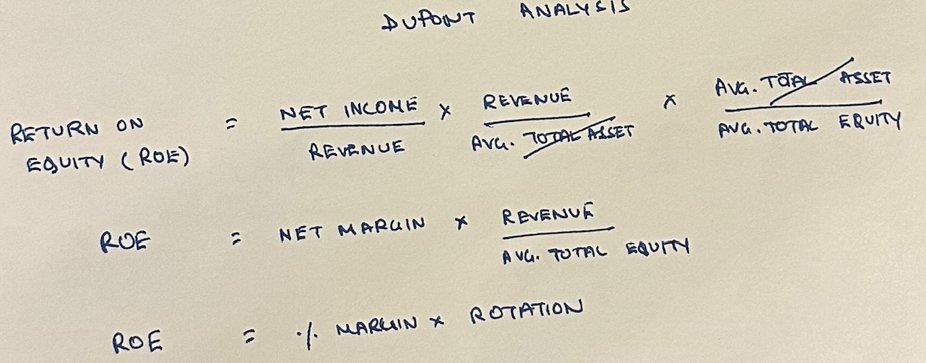 DUPONT ANALYSIS
RETURN ON EQUITY (ROE) = NET INCOME / REVENUE × REVENUE / AVG. TOTAL ASSET × AVG. TOTAL ASSET / AVG. TOTAL EQUITY
ROE = NET MARGIN × REVENUE / AVG. TOTAL EQUITY
ROE = % MARGIN × ROTATION